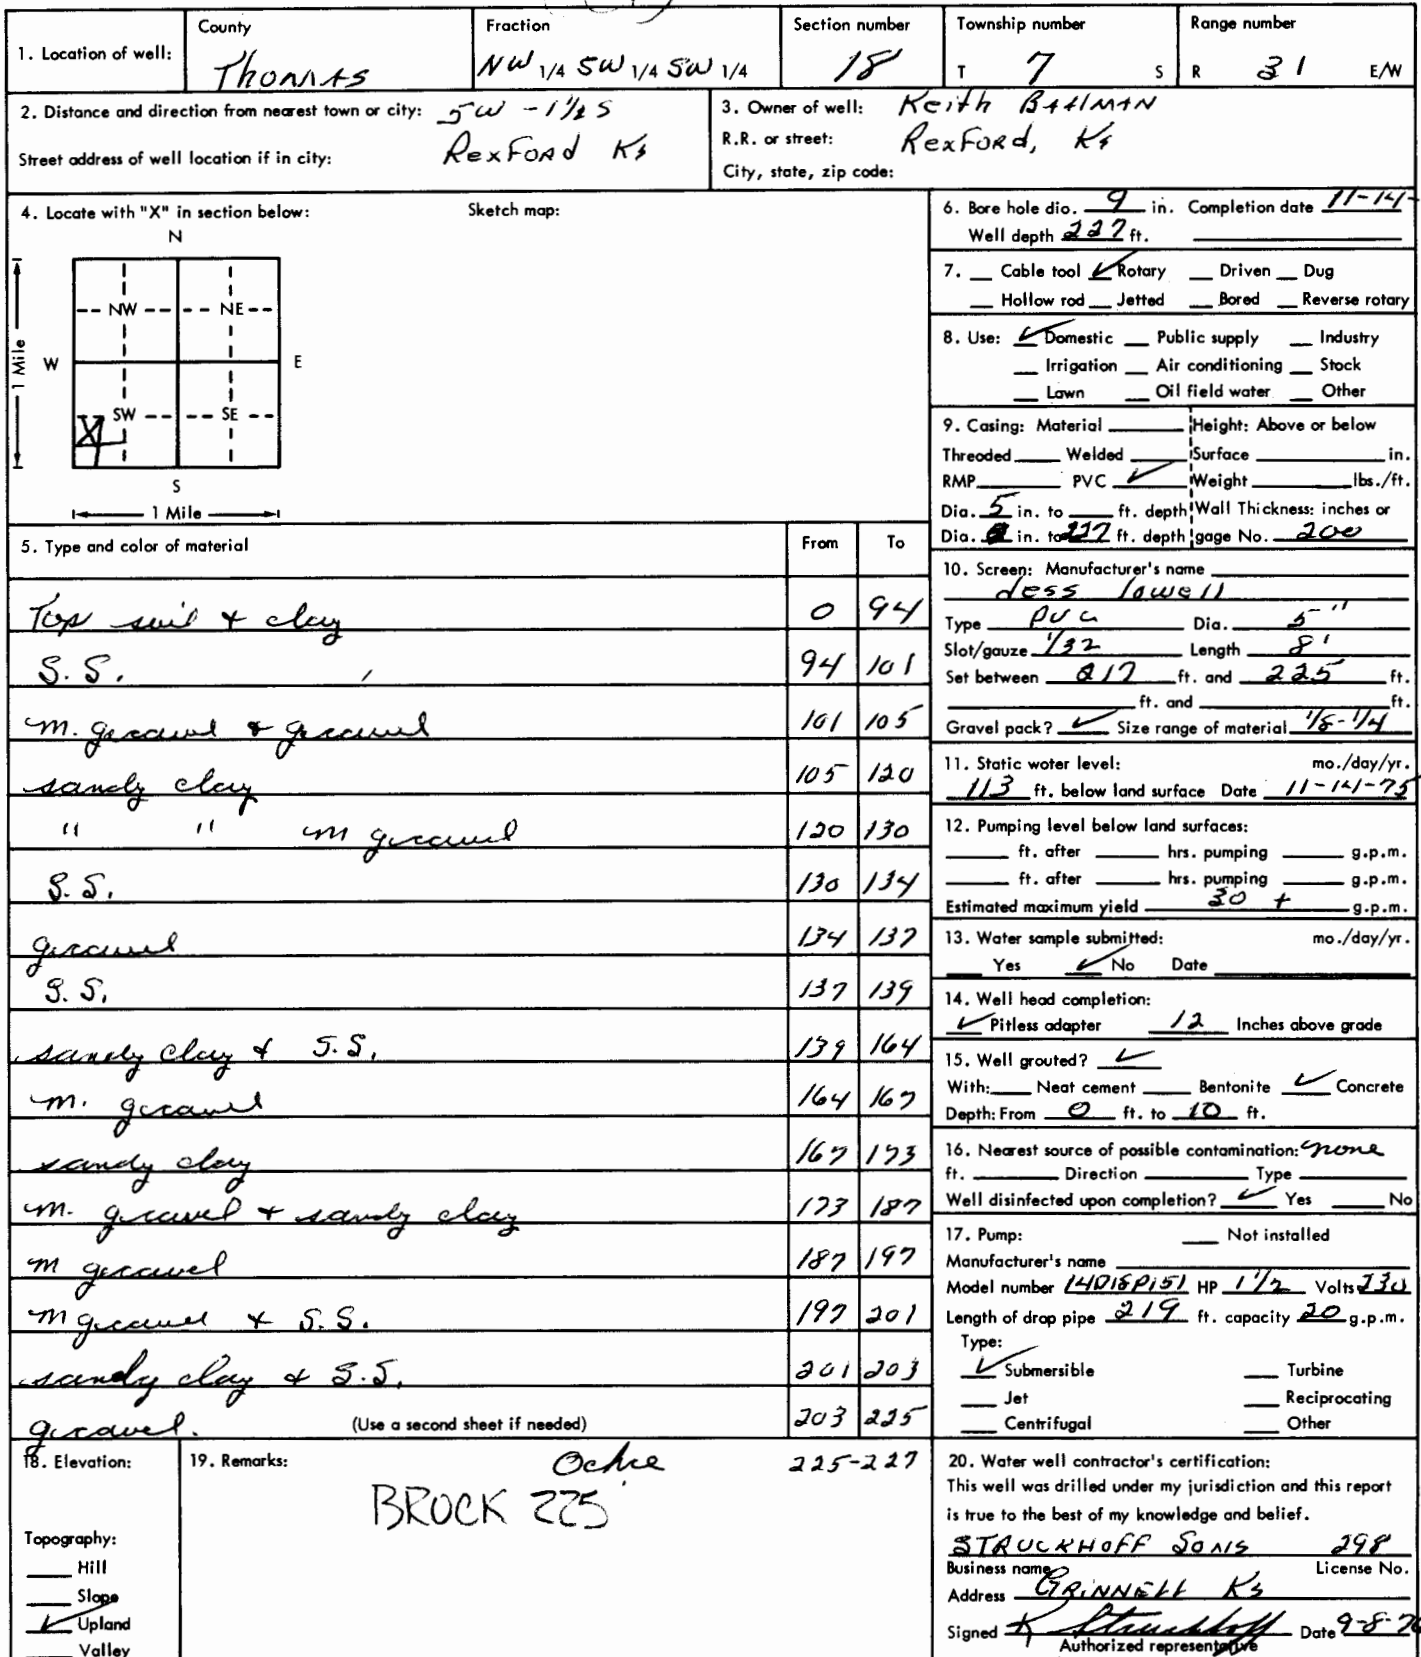 County Fraction Section number Township number Range number
1. Location of well: Thomas NW 1/4 SW 1/4 SW 1/4 18 T 7 S R 31 E/W
2. Distance and direction from nearest town or city: 5W - 1½ S
Rexford Ks
Street address of well location if in city:
3. Owner of well: Keith BAHLMAN
R.R. or street: Rexford, Ks
City, state, zip code:
4. Locate with "X" in section below: Sketch map:
N
NW NE
W E
1 Mile
X SW SE
S
1 Mile
5. Type and color of material From To
Top soil & clay 0 94
S.S. 94 101
m. gravel & gravel 101 105
sandy clay 105 120
" " m gravel 120 130
S.S. 130 134
gravel 134 137
S.S. 137 139
sandy clay & S.S. 139 164
m. gravel 164 167
sandy clay 167 173
m. gravel & sandy clay 173 187
m gravel 187 197
m gravel & S.S. 197 201
sandy clay & S.S. 201 203
gravel. (Use a second sheet if needed) 203 225
18. Elevation: 19. Remarks: Ochre 225-227
BROCK 225
Topography:
Hill
Slope
✓ Upland
Valley
6. Bore hole dia. 9 in. Completion date 11-14-
Well depth 227 ft.
7. Cable tool ✓ Rotary Driven Dug
Hollow rod Jetted Bored Reverse rotary
8. Use: ✓ Domestic Public supply Industry
Irrigation Air conditioning Stock
Lawn Oil field water Other
9. Casing: Material Height: Above or below
Threaded Welded Surface in.
RMP PVC ✓ Weight lbs./ft.
Dia. 5 in. to ft. depth Wall Thickness: inches or
Dia. in. to 227 ft. depth gage No. 200
10. Screen: Manufacturer's name
Jess Lowell
Type PVC Dia. 5"
Slot/gauze 1/32 Length 8'
Set between 217 ft. and 225 ft.
ft. and ft.
Gravel pack? ✓ Size range of material 1/8-1/4
11. Static water level: mo./day/yr.
113 ft. below land surface Date 11-14-75
12. Pumping level below land surfaces:
ft. after hrs. pumping g.p.m.
ft. after hrs. pumping g.p.m.
Estimated maximum yield 30 + g.p.m.
13. Water sample submitted: mo./day/yr.
Yes ✓ No Date
14. Well head completion:
✓ Pitless adapter 12 Inches above grade
15. Well grouted? ✓
With: Neat cement Bentonite ✓ Concrete
Depth: From 0 ft. to 10 ft.
16. Nearest source of possible contamination: none
ft. Direction Type
Well disinfected upon completion? ✓ Yes No
17. Pump: Not installed
Manufacturer's name
Model number HP 1 1/2 Volts 230
Length of drop pipe 219 ft. capacity 20 g.p.m.
Type:
✓ Submersible Turbine
Jet Reciprocating
Centrifugal Other
20. Water well contractor's certification:
This well was drilled under my jurisdiction and this report
is true to the best of my knowledge and belief.
STRUCKHOFF SONS 298
Business name License No.
Address GRINNELL Ks
Signed K Struckhoff Date 9-8-76
Authorized representative